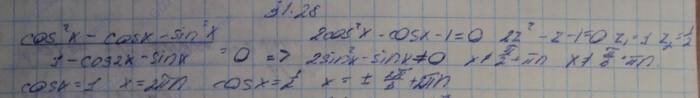 31.28
cos²x - cosx - sin²x / 1 - cos2x - sinx = 0 => 2cos²x - cosx - 1 = 0 2z² - z - 1 = 0 z₁ = 1 z₂ = 1/2
2sin²x - sinx ≠ 0 x ≠ + πn x ≠ + πn
cosx = 1 x = 2πn cosx = x = ± + 2πn